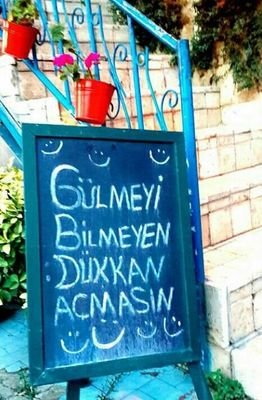 GÜLMEYİ
BİLMEYEN
DÜKKAN
AÇMASIN